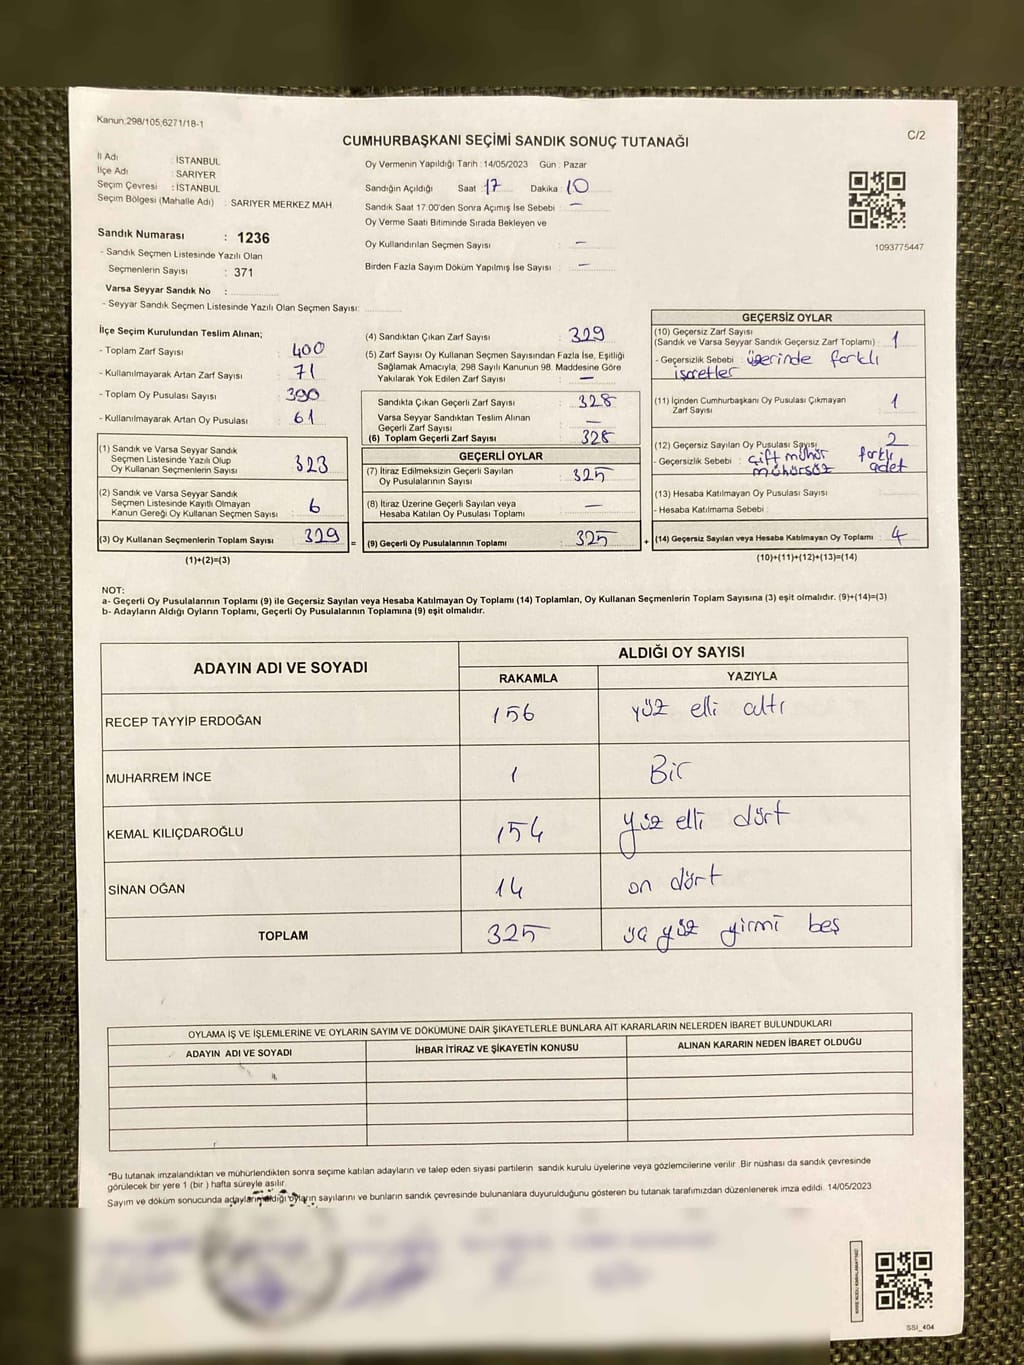 Kanun;298/105,6271/18-1
C/2
CUMHURBAŞKANI SEÇİMİ SANDIK SONUÇ TUTANAĞI
İl Adı : İSTANBUL
İlçe Adı : SARIYER
Seçim Çevresi : İSTANBUL
Seçim Bölgesi (Mahalle Adı) : SARIYER MERKEZ MAH.
Sandık Numarası : 1236
- Sandık Seçmen Listesinde Yazılı Olan
Seçmenlerin Sayısı : 371
Varsa Seyyar Sandık No :
- Seyyar Sandık Seçmen Listesinde Yazılı Olan Seçmen Sayısı:
Oy Vermenin Yapıldığı Tarih : 14/05/2023 Gün : Pazar
Sandığın Açıldığı Saat : 17 Dakika : 10
Sandık Saat 17.00'den Sonra Açımış İse Sebebi : —
Oy Verme Saati Bitiminde Sırada Bekleyen ve
Oy Kullandırılan Seçmen Sayısı : —
Birden Fazla Sayım Döküm Yapılmış İse Sayısı : —
1093775447
İlçe Seçim Kurulundan Teslim Alınan;
- Toplam Zarf Sayısı : 400
- Kullanılmayarak Artan Zarf Sayısı : 71
- Toplam Oy Pusulası Sayısı : 390
- Kullanılmayarak Artan Oy Pusulası : 61
(1) Sandık ve Varsa Seyyar Sandık
Seçmen Listesinde Yazılı Olup
Oy Kullanan Seçmenlerin Sayısı : 323
(2) Sandık ve Varsa Seyyar Sandık
Seçmen Listesinde Kayıtlı Olmayan
Kanun Gereği Oy Kullanan Seçmen Sayısı : 6
(3) Oy Kullanan Seçmenlerin Toplam Sayısı : 329
(1)+(2)=(3)
(4) Sandıktan Çıkan Zarf Sayısı : 329
(5) Zarf Sayısı Oy Kullanan Seçmen Sayısından Fazla İse, Eşitliği
Sağlamak Amacıyla, 298 Sayılı Kanunun 98. Maddesine Göre
Yakılarak Yok Edilen Zarf Sayısı : —
Sandıkta Çıkan Geçerli Zarf Sayısı : 328
Varsa Seyyar Sandıktan Teslim Alınan
Geçerli Zarf Sayısı : —
(6) Toplam Geçerli Zarf Sayısı : 328
GEÇERLİ OYLAR
(7) İtiraz Edilmeksizin Geçerli Sayılan
Oy Pusulalarının Sayısı : 325
(8) İtiraz Üzerine Geçerli Sayılan veya
Hesaba Katılan Oy Pusulası Toplamı : —
= (9) Geçerli Oy Pusulalarının Toplamı : 325 +
GEÇERSİZ OYLAR
(10) Geçersiz Zarf Sayısı
(Sandık ve Varsa Seyyar Sandık Geçersiz Zarf Toplamı) : 1
- Geçersizlik Sebebi : üzerinde farklı
işaretler
(11) İçinden Cumhurbaşkanı Oy Pusulası Çıkmayan
Zarf Sayısı : 1
(12) Geçersiz Sayılan Oy Pusulası Sayısı : 2
- Geçersizlik Sebebi : çift mühür farklı
mühürsüz adet
(13) Hesaba Katılmayan Oy Pusulası Sayısı :
- Hesaba Katılmama Sebebi :
(14) Geçersiz Sayılan veya Hesaba Katılmayan Oy Toplamı : 4
(10)+(11)+(12)+(13)=(14)
NOT:
a- Geçerli Oy Pusulalarının Toplamı (9) ile Geçersiz Sayılan veya Hesaba Katılmayan Oy Toplamı (14) Toplamları, Oy Kullanan Seçmenlerin Toplam Sayısına (3) eşit olmalıdır. (9)+(14)=(3)
b- Adayların Aldığı Oyların Toplamı, Geçerli Oy Pusulalarının Toplamına (9) eşit olmalıdır.
ADAYIN ADI VE SOYADI
ALDIĞI OY SAYISI
RAKAMLA YAZIYLA
RECEP TAYYİP ERDOĞAN 156 yüz elli altı
MUHARREM İNCE 1 Bir
KEMAL KILIÇDAROĞLU 154 yüz elli dört
SİNAN OĞAN 14 on dört
TOPLAM 325 üç yüz yirmi beş
OYLAMA İŞ VE İŞLEMLERİNE VE OYLARIN SAYIM VE DÖKÜMÜNE DAİR ŞİKAYETLERLE BUNLARA AİT KARARLARIN NELERDEN İBARET BULUNDUKLARI
ADAYIN ADI VE SOYADI İHBAR İTİRAZ VE ŞİKAYETİN KONUSU ALINAN KARARIN NEDEN İBARET OLDUĞU
*Bu tutanak imzalandıktan ve mühürlendikten sonra seçime katılan adayların ve talep eden siyasi partilerin sandık kurulu üyelerine veya gözlemcilerine verilir. Bir nüshası da sandık çevresinde
görülecek bir yere 1 (bir ) hafta süreyle asılır.
Sayım ve döküm sonucunda adayların aldığı oyların sayılarını ve bunların sandık çevresinde bulunanlara duyurulduğunu gösteren bu tutanak tarafımızdan düzenlenerek imza edildi. 14/05/2023
SSİ_404